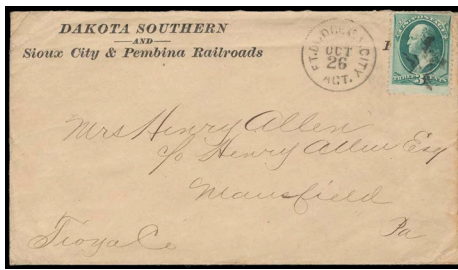 DAKOTA SOUTHERN
AND
Sioux City & Pembina Railroads
OCT
26
Mrs Henry Allen
c/o Henry Allen Esq
Mansfield
Tioga Co
Pa